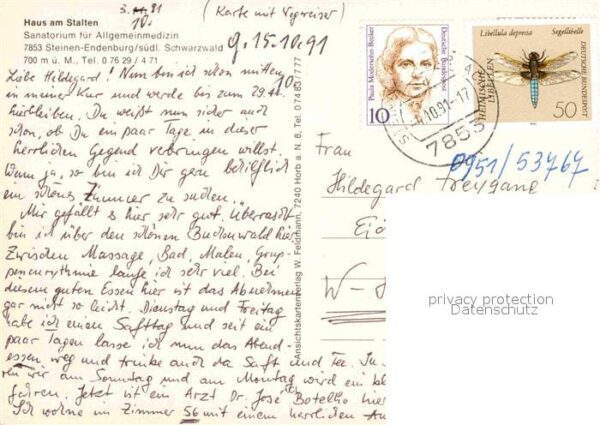 3. 11. 91
10.
(Karte mit Wegweiser)
Haus am Stalten
Sanatorium für Allgemeinmedizin
7853 Steinen-Endenburg/südl. Schwarzwald
700 m ü. M., Tel. 0 76 29 / 4 71
9.15.10.91
Liebe Hildegard! Nun bin ich schon mitten
in meiner Kur und werde bis zum 29.10.
hierbleiben. Du weißt nun sicher auch
schon, ob Du ein paar Tage in dieser
herrlichen Gegend verbringen willst.
Wenn ja, so bin ich Dir gern behilflich
ein schönes Zimmer zu suchen.
Mir gefällt es hier sehr gut. Überrascht
bin ich über den schönen Buchenwald hier.
Zwischen Massage, Bad, Malen, Grup-
peneurythmie laufe ich sehr viel. Bei
diesem guten Essen hier ist das Abnehmen
gar nicht so leicht. Dienstag und Freitag
habe ich einen Safttag und seit ein
paar Tagen lasse ich nun das Abend-
essen weg und trinke auch da Saft und Tee. In
ren wir am Sonntag und am Montag wird ein bl
fahren. Jetzt ist ein Arzt Dr. José Botelho hier
Ich wohne im Zimmer 56 mit einem herrlichen Au
Ansichtskartenverlag W. Feldmann, 7240 Horb a. N. 8, Tel. 07483/777
Paula Modersohn-Becker
Deutsche Bundespost
10
Libellula depressa
Segellibelle
DEUTSCHE BUNDESPOST
HEIMISCHE LIBELLEN
50
10.91-17
7853
0951/53767
Frau
Hildegard Freygang
W-
privacy protection
Datenschutz